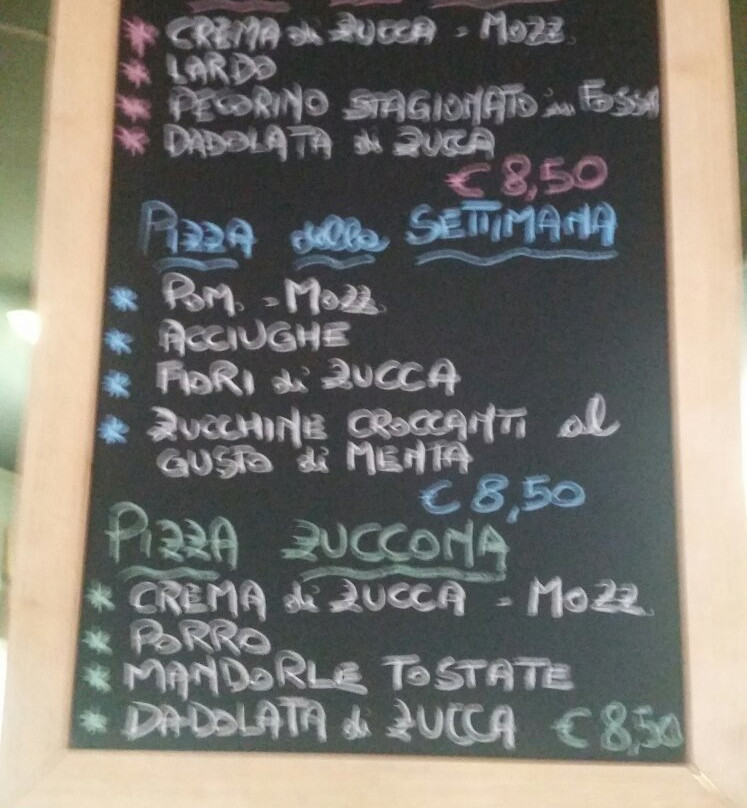 * CREMA di ZUCCA - MOZZ.
* LARDO
* PECORINO STAGIONATO in FOSSA
* DADOLATA di ZUCCA
€ 8,50
PIZZA della SETTIMANA
* POM. - MOZZ.
* ACCIUGHE
* FIORI di ZUCCA
* ZUCCHINE CROCCANTI al
GUSTO di MENTA
€ 8,50
PIZZA ZUCCONA
* CREMA di ZUCCA - MOZZ.
* PORRO
* MANDORLE TOSTATE
* DADOLATA di ZUCCA € 8,50